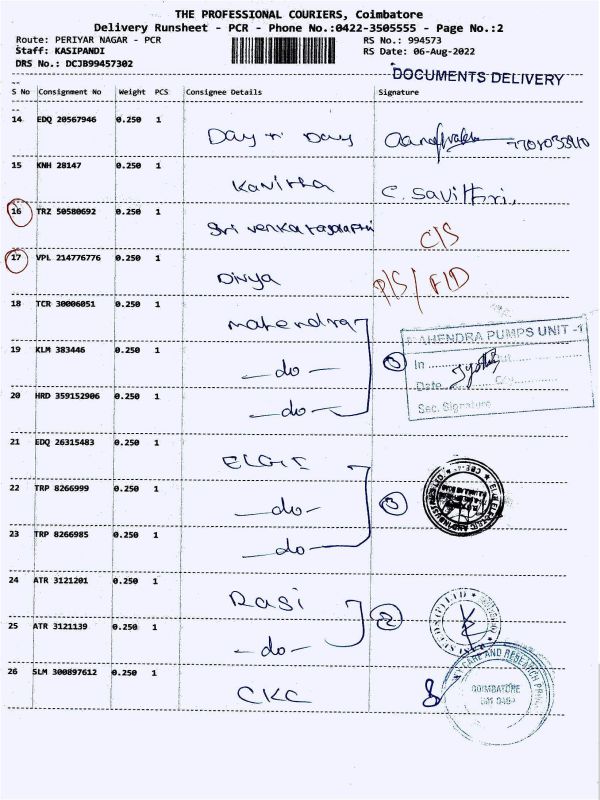 THE PROFESSIONAL COURIERS, Coimbatore
Delivery Runsheet - PCR - Phone No.:0422-3505555 - Page No.:2
Route: PERIYAR NAGAR - PCR RS No.: 994573
Staff: KASIPANDI RS Date: 06-Aug-2022
DRS No.: DCJB99457302
DOCUMENTS DELIVERY
S No Consignment No Weight PCS Consignee Details Signature
14 EDQ 20567946 0.250 1
Day to Day
15 KNH 28147 0.250 1
Kavitha C. Savithri,
16 TRZ 50580692 0.250 1
Sri Venkatajalapathi C/S
17 VPL 214776776 0.250 1
Divya P/S / FID
18 TCR 30006051 0.250 1
Mahendra
MAHENDRA PUMPS UNIT -1
19 KLM 383446 0.250 1
-do- 3 In Out
Date
20 HRD 359152906 0.250 1
-do- Sec. Signature
21 EDQ 26315483 0.250 1
ELGI
22 TRP 8266999 0.250 1
-do- 3
23 TRP 8266985 0.250 1
-do-
24 ATR 3121201 0.250 1
Rasi 2
25 ATR 3121139 0.250 1
-do-
26 SLM 300897612 0.250 1
CKC COIMBATORE